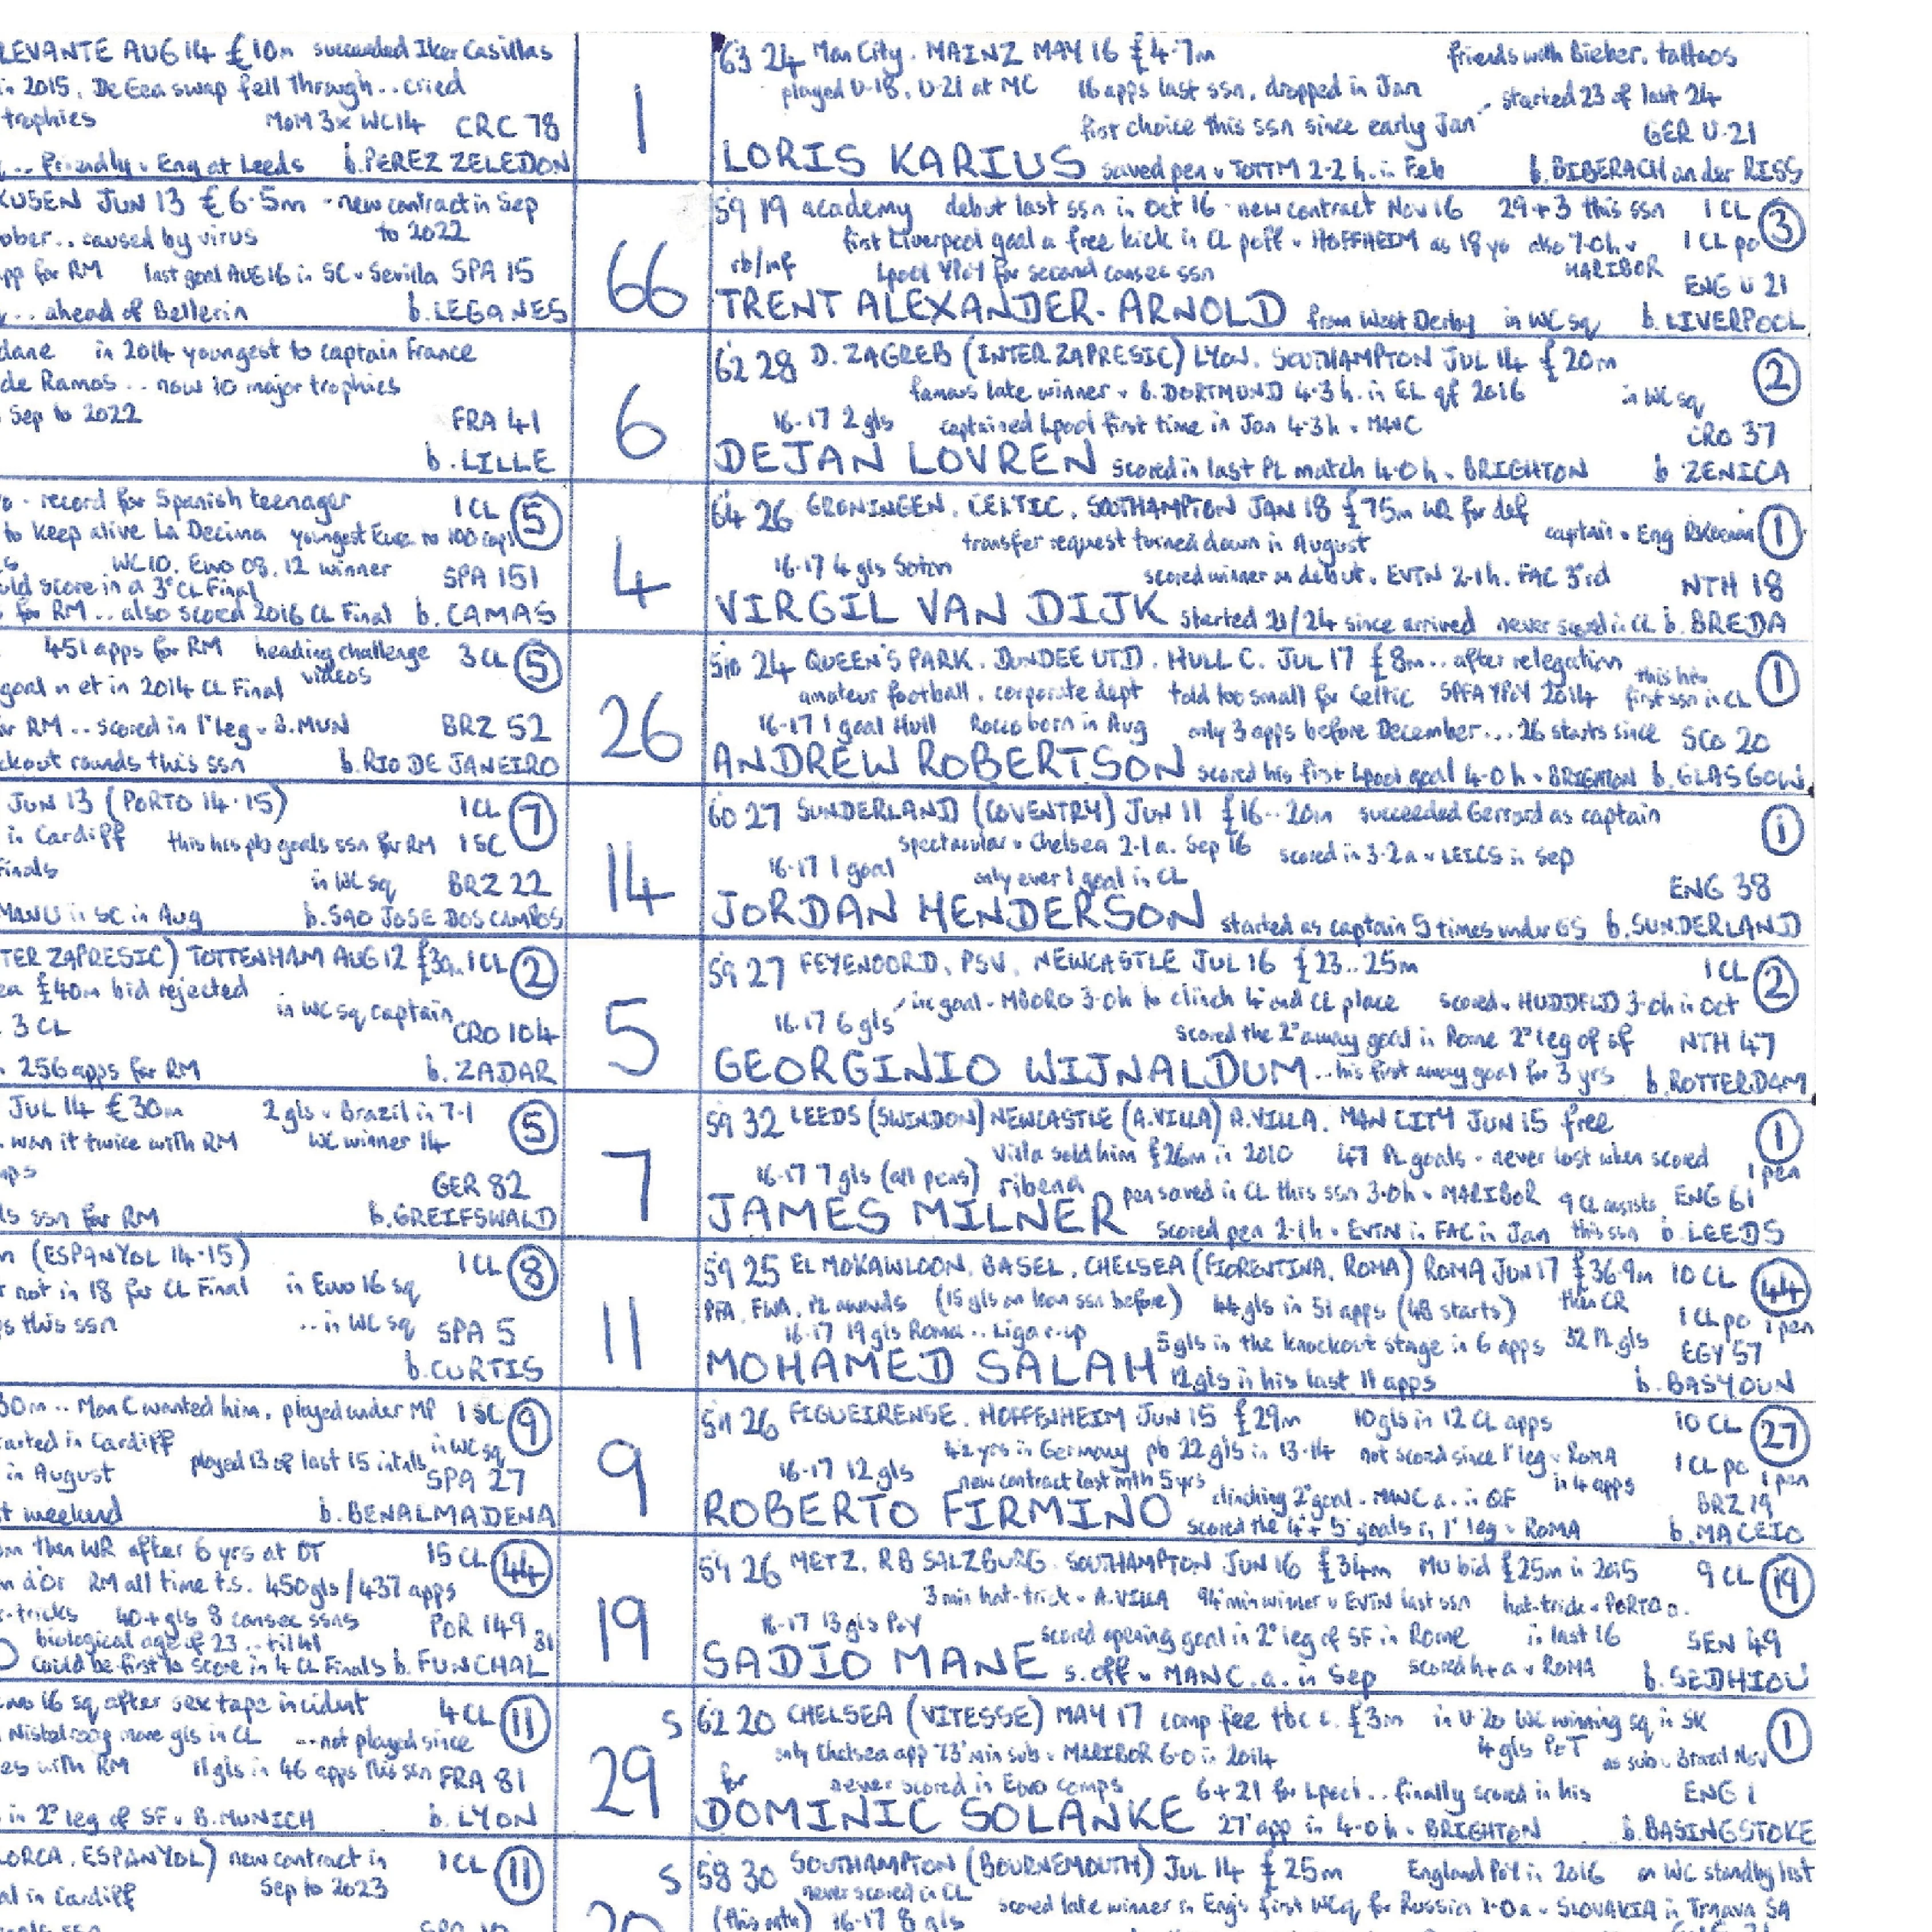 LEVANTE AUG 14 £10m succeeded Iker Casillas
in 2015. De Gea swap fell through.. cried
trophies MoM 3x WC14 CRC 78
... Friendly v Eng at Leeds b. PEREZ ZELEDON
1
6'3 24 Man City. MAINZ MAY 16 £4.7m friends with Bieber. tattoos
played U-18, U-21 at MC 16 apps last ssn, dropped in Jan started 23 of last 24
first choice this ssn since early Jan GER U-21
LORIS KARIUS saved pen v TOTTM 2-2 h. in Feb b. BIBERACH an der RISS
KUSEN JUN 13 £6.5m - new contract in Sep
ober.. caused by virus to 2022
app for RM last goal AUG 16 in SC v Sevilla SPA 15
... ahead of Bellerin b. LEGANES
66
5'9 19 academy debut last ssn in Oct 16 - new contract Nov 16 29+3 this ssn 1 CL 3
first Liverpool goal a free kick in CL poff v HOFFHEIM as 18 yo also 7-0 h v 1 CL po
rb/mf Lpool YPoY for second consec ssn MARIBOR ENG U 21
TRENT ALEXANDER-ARNOLD from West Derby in WC sq b. LIVERPOOL
dane in 2014 youngest to captain France
de Ramos .. now 10 major trophies
Sep to 2022 FRA 41
b. LILLE
6
6'2 28 D. ZAGREB (INTER ZAPRESIC) LYON. SOUTHAMPTON JUL 14 £20m 2
famous late winner v B. DORTMUND 4-3 h. in EL qf 2016 in WC sq
16-17 2 gls captained Lpool first time in Jan 4-3 h v MANC CRO 37
DEJAN LOVREN scored in last PL match 4-0 h v BRIGHTON b. ZENICA
- record for Spanish teenager 1 CL 5
to keep alive La Decima youngest Euro to 100 caps
WC10, Euro 08, 12 winner SPA 151
uld score in a 3° CL Final
s for RM .. also scored 2016 CL Final b. CAMAS
4
6'4 26 GRONINGEN. CELTIC. SOUTHAMPTON JAN 18 £75m WR for def captain v Eng 1
transfer request turned down in August
16-17 4 gls Soton scored winner on debut v EVTN 2-1 h. FAC 3rd NTH 18
VIRGIL VAN DIJK started 21/24 since arrived never scored in CL b. BREDA
451 apps for RM heading challenge 3 CL 5
goal in et in 2014 CL Final videos
for RM .. scored in 1° leg v B.MUN BRZ 52
ckout rounds this ssn b. RIO DE JANEIRO
26
5'10 24 QUEEN'S PARK. DUNDEE UTD. HULL C. JUL 17 £8m .. after relegation this his 1
amateur football. corporate dept told too small for Celtic SPFA YPoY 2014 first ssn in CL
16-17 1 goal Hull Rocco born in Aug only 3 apps before December... 26 starts since SCO 20
ANDREW ROBERTSON scored his first Lpool goal 4-0 h v BRIGHTON b. GLASGOW
JUN 13 (PORTO 14-15) 1 CL 7
in Cardiff this his pb goals ssn for RM 1 SC
Finals in WC sq BRZ 22
MANU in SC in Aug b. SAO JOSE DOS CAMPOS
14
6'0 27 SUNDERLAND (COVENTRY) JUN 11 £16..20m succeeded Gerrard as captain 1
spectacular v Chelsea 2-1 a. Sep 16 scored in 3-2 a v LEICS in Sep
16-17 1 goal only ever 1 goal in CL ENG 38
JORDAN HENDERSON started as captain 5 times under GS b. SUNDERLAND
TER ZAPRESIC) TOTTENHAM AUG 12 £30.. 1 CL 2
ea £40m bid rejected in WC sq captain
3 CL CRO 104
256 apps for RM b. ZADAR
5
5'9 27 FEYENOORD, PSV, NEWCASTLE JUL 16 £23..25m 1 CL 2
inc goal v MBORO 3-0 h to clinch 4° and CL place scored v HUDDFLD 3-0 h in Oct
16-17 6 gls scored the 2° away goal in Rome 2° leg of sf NTH 47
GEORGINIO WIJNALDUM ... his first away goal for 3 yrs b. ROTTERDAM
JUL 14 £30m 2 gls v Brazil in 7-1 5
won it twice with RM WC winner 14
mps GER 82
ls ssn for RM b. GREIFSWALD
7
5'9 32 LEEDS (SWINDON) NEWCASTLE (A.VILLA) A.VILLA. MAN CITY JUN 15 free 1
Villa sold him £26m in 2010 47 PL goals - never lost when scored 1 pen
16-17 7 gls (all pens) ribena pen saved in CL this ssn 3-0 h v MARIBOR 9 CL assists ENG 61
JAMES MILNER scored pen 2-1 h v EVTN in FAC in Jan this ssn b. LEEDS
(ESPANYOL 14-15) 1 CL 8
not in 18 for CL Final in Euro 16 sq
s this ssn .. in WC sq SPA 5
b. CURTIS
11
5'9 25 EL MOKAWLOON. BASEL. CHELSEA (FIORENTINA, ROMA) ROMA JUN 17 £36.9m 10 CL 44
PFA, FWA, PL awards (15 gls on loan ssn before) 44 gls in 51 apps (48 starts) then CR 1 CL po 1 pen
16-17 19 gls Roma .. Liga r-up 5 gls in the knockout stage in 6 apps 32 PL gls EGY 57
MOHAMED SALAH 12 gls in his last 11 apps b. BASYOUN
30m .. Man C wanted him, played under MP 1 SC 9
tarted in Cardiff played 13 of last 15 intnls in WC sq
in August SPA 27
t weekend b. BENALMADENA
9
5'11 26 FIGUEIRENSE. HOFFENHEIM JUN 15 £29m 10 gls in 12 CL apps 10 CL 27
4½ yrs in Germany pb 22 gls in 13-14 not scored since 1° leg v ROMA 1 CL po 1 pen
16-17 12 gls new contract last mth 5 yrs in 4 apps
clinching 2° goal v MANC a. in QF BRZ 19
ROBERTO FIRMINO scored the 4° + 5° goals in 1° leg v ROMA b. MACEIO
m then WR after 6 yrs at OT 15 CL 44
n d'Or RM all time t.s. 450 gls/437 apps
-tricks 40+gls 8 consec ssns POR 149
biological age of 23 .. til 41 81
could be first to score in 4 CL Finals b. FUNCHAL
19
5'9 26 METZ. RB SALZBURG. SOUTHAMPTON JUN 16 £34m MU bid £25m in 2015 9 CL 19
3 min hat-trick v A.VILLA 94° min winner v EVTN last ssn hat-trick v PORTO a.
16-17 13 gls PoY scored opening goal in 2° leg of SF in Rome in last 16 SEN 49
SADIO MANE s. off v MANC. a. in Sep scored h+a v ROMA b. SEDHIOU
uro 16 sq after sex tape incident 4 CL 11
Nistelrooy more gls in CL ...not played since
es with RM 11 gls in 46 apps this ssn FRA 81
in 2° leg of SF v B.MUNICH b. LYON
29
S 6'2 20 CHELSEA (VITESSE) MAY 17 comp fee tbc c. £3m in U-20 WC winning sq in SK 1
only Chelsea app 73° min sub v MARIBOR 6-0 in 2014 4 gls PoT as sub v Brazil Nov
for never scored in Euro comps 6+21 for Lpool .. finally scored in his ENG 1
DOMINIC SOLANKE 27° app in 4-0 h v BRIGHTON b. BASINGSTOKE
LORCA, ESPANYOL) new contract in 1 CL 11
al in Cardiff Sep to 2023
20
S 5'8 30 SOUTHAMPTON (BOURNEMOUTH) JUL 14 £25m England PoY in 2016 on WC standby list
never scored in CL scored late winner in Eng's first WCq for Russia 1-0 a v SLOVAKIA in Trnava SA
(this mth) 16-17 8 gls